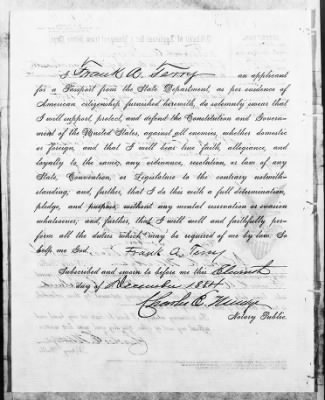 I Frank A. Terry an applicant
for a Passport from the State Department, as per evidence of
American citizenship furnished herewith, do solemnly swear that
I will support, protect, and defend the Constitution and Govern-
ment of the United States, against all enemies, whether domestic
or foreign, and that I will bear true faith, allegiance, and
loyalty to the same, any ordinance, resolution, or law of any
State, Convention, or Legislature to the contrary notwith-
standing, and, further, that I do this with a full determination,
pledge, and purpose, without any mental reservation or evasion
whatsoever, and, further, that I will well and faithfully per-
form all the duties which may be required of me by law. So
help me God. Frank A. Terry
Subscribed and sworn to before me this
day of December 1884
Charles E.
Notary Public.